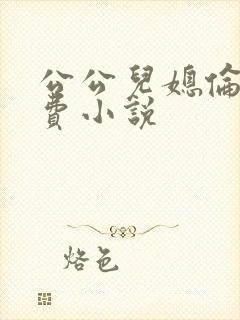 公公兒媳倫
費小說
烙色